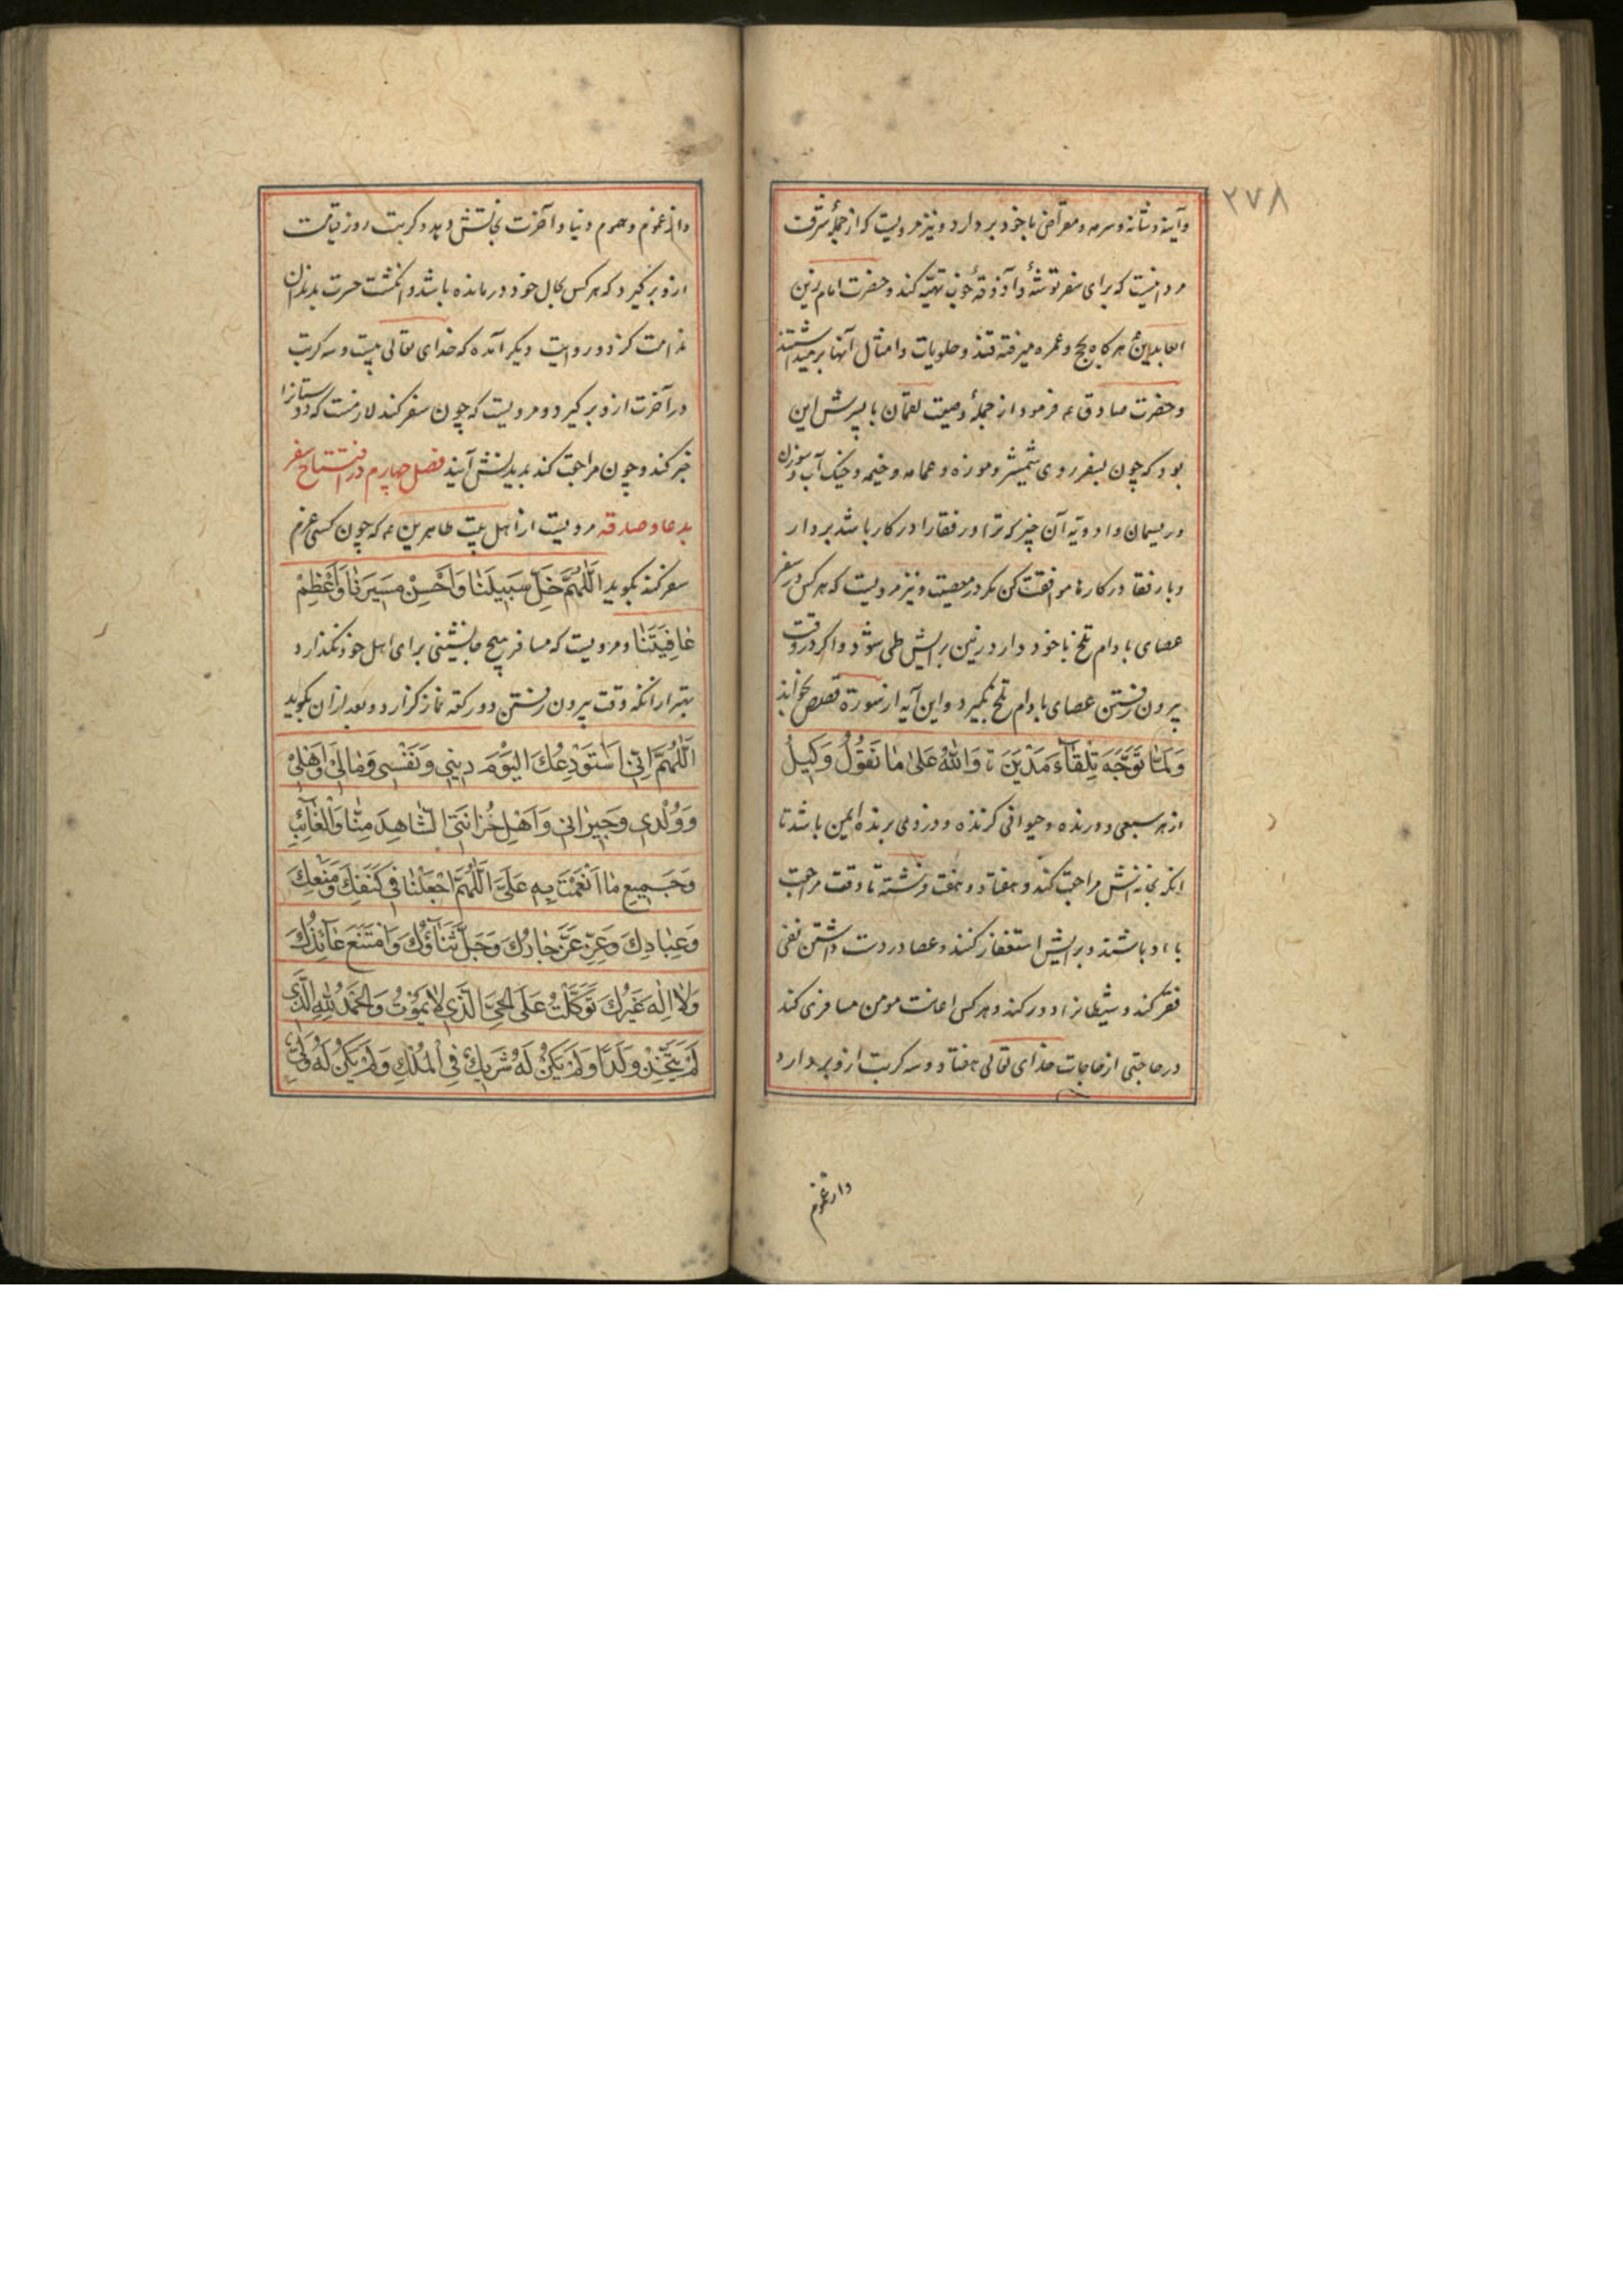 ٢٧٨
وآینه و شانه و سرمه و مقراض با خود بر دارد و نیز مرویست که از جملهٔ شرف
مرد اینست که برای سفر توشهٔ و آذوقهٔ خوب تهیّه کند و حضرت امام زین
العابدین ع هر کاه بحج و عمره میرفته قند و حلویات و امثال آنها بر میداشتند
و حضرت صادق عه فرمود از جملهٔ وصیت لقمان با پسرش این
بود که چون بسفر روی شمشیر و موزه و عمامه و خیمه و خیک آب و سوزن
و ریسمان و ادویه آن چیز که ترا و رفقا را در کار باشد بردار
و با رفقا در کارها موافقت کن مکر در معصیت و نیز مرویست که هر کس در سفر
عصای بادام تلخ با خود دارد زمین برایش طی شود و اکر در وقت
بیرون رفتن عصای بادام تلخ بگیرد و این آیه از سورة قصص بخواند
وَلَمَّا تَوَجَّهَ تِلْقَآءَ مَدْيَنَ تا وَاللّٰهُ عَلىٰ مٰا نَقُوْلُ وَكِيلٌ
از هر سبعی و درنده و حیوانی کزنده و دزدی برنده ایمن باشد تا
انکه بخانه‌اش مراجعت کند و هفتاد و هفت فرشته تا وقت مراجعت
با او باشند و برایش استغفار کنند و عصا در دست داشتن نفی
فقر کند و شیطانرا دور کند و هر کس اعانت مومن مسافری کند
در حاجتی از حاجات خدای تعالی هفتاد و سه کربت ازو بر دارد
واز غموم
واز غموم و هموم دنیا و آخرت نجاتش دهد و کربت روز قیامت
ازو بر کیرد که هر کس بحال خود درمانده باشد و انکشت حسرت بدندان
ندامت کزد و در روایت دیکر آمده که خدای تعالی بیست و سه کربت
در آخرت ازو بر کیرد و مرویست که چون سفر کند لازمست که دوستانرا
خبر کند و چون مراجعت کند بدیدنش آیند فصل چهارم در افتتاح سفر
بدعا و صدقه مرویست از اهل بیت طاهرین عه که چون کسی عزم
سفر کند بکوید اَللّٰهُمَّ خَلِّ سَبِيلَنٰا وَاَحْسِنْ مَسِيرَنٰا وَاَعْظِمْ
عٰافِيَتَنٰا و مرویست که مسافر هیچ جانشینی برای اهل خود نکذارد
بهتر از انکه وقت بیرون رفتن دو رکعه نماز کزارد و بعد از ان بکوید
اَللّٰهُمَّ اِنّي اَسْتَوْدِعُكَ الْيَوْمَ ديني وَنَفْسي وَمٰالي وَاَهْلي
وَوُلْدي وَجيرٰاني وَاَهْلِ خُزٰانَتي الشّٰاهِدَ مِنّٰا وَالْغٰائِبِ
وَجَميعِ مٰا اَنْعَمْتَ بِهِ عَلَيَّ اَللّٰهُمَّ اجْعَلْنٰا في كَنَفِكَ وَمَنْعِكَ
وَعِبٰادِكَ وَعِزِّ عَزَّ جٰارُكَ وَجَلَّ ثَنٰآؤُكَ وَامْتَنَعَ عٰآئِذُكَ
وَلاٰ اِلٰهَ غَيْرُكَ تَوَكَّلْتُ عَلَى الْحَيِّ الَّذي لاٰ يَمُوْتُ وَالْحَمْدُ لِلّٰهِ الَّذي
لَمْ يَتَّخِذْ وَلَدًا وَلَمْ يَكُنْ لَهُ شَريكٌ فِي الْمُلْكِ وَلَمْ يَكُنْ لَهُ وَلِيٌّ